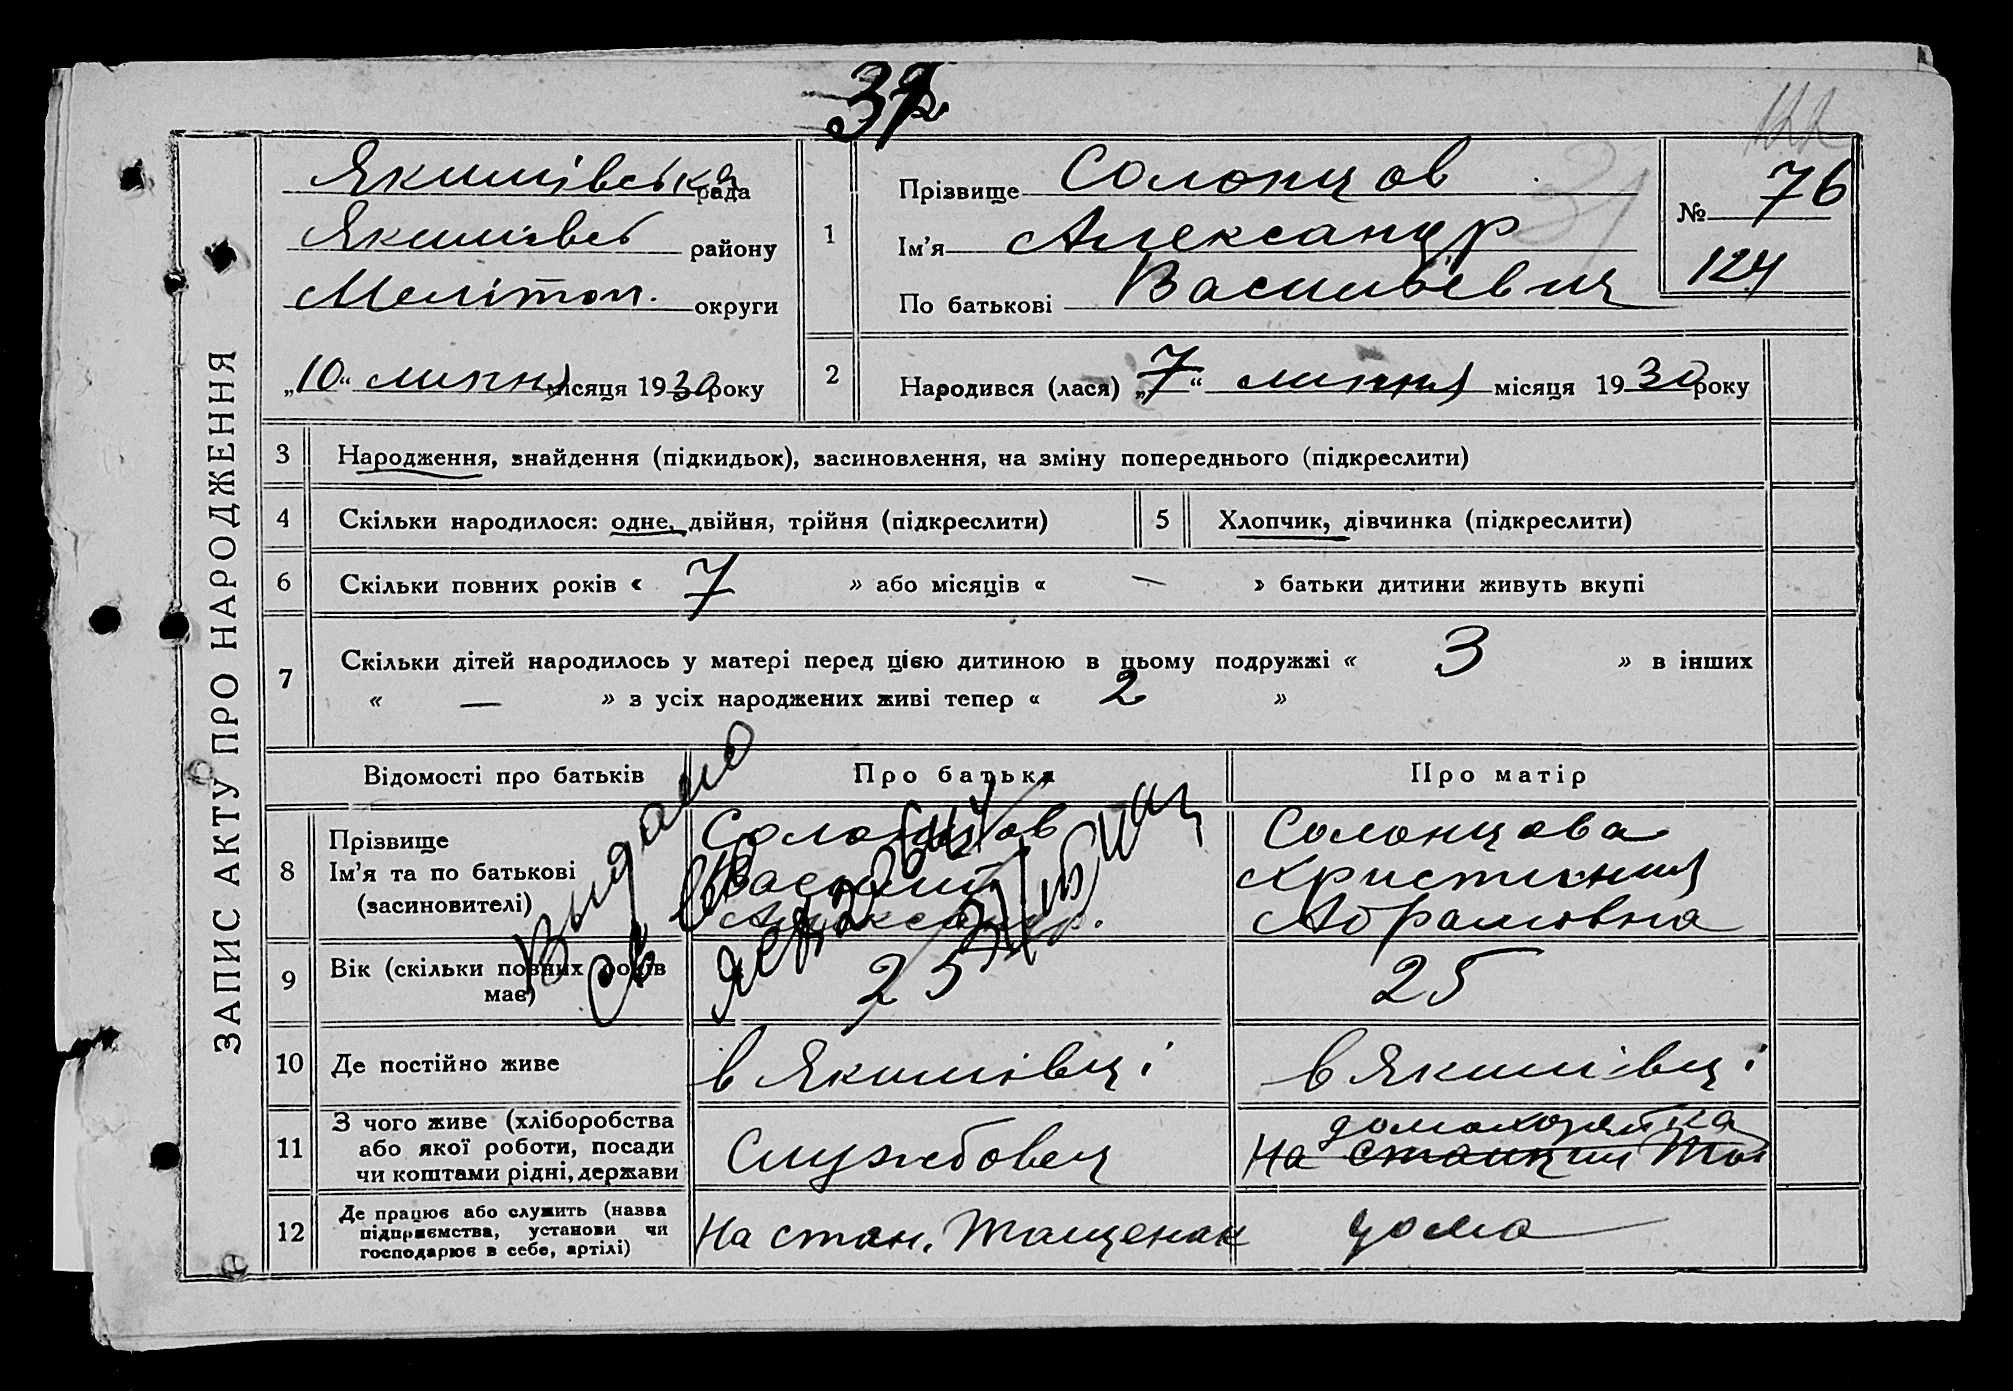 122
Якимівська рада
Якимівськ району
Мелітоп. округи
„10“ липня місяця 1930 року
1
Прізвище Солонцов
Ім’я Александр
По батькові Васильевич
№ 76
124
31
2
Народився (лася) „7“ липня місяця 1930 року
ЗАПИС АКТУ ПРО НАРОДЖЕННЯ
3 Народження, знайдення (підкидьок), засиновлення, на зміну попереднього (підкреслити)
4 Скільки народилося: одне, двійня, трійня (підкреслити)
5 Хлопчик, дівчинка (підкреслити)
6 Скільки повних років « 7 » або місяців « — » батьки дитини живуть вкупі
7 Скільки дітей народилось у матері перед цією дитиною в цьому подружжі « 3 » в інших
« — » з усіх народжених живі тепер « 2 »
Відомості про батьків
Про батька
Про матір
8
Прізвище
Ім’я та по батькові
(засновителі)
Солонцов
Василий
Александр.
Солонцова
Христиния
Абрамовна
Выдано
9
Вік (скільки повних років
має)
25
25
10 Де постійно живе
в Якимівці
в Якимівці
11
З чого живе (хліборобства
або якої роботи, посади
чи коштами рідні, держави
Службовец
домохозяйка
На станции Та
12
Де працює або служить (назва
підприємства, установи чи
господарює в себе, артілі)
На стан. Тащенак
дома